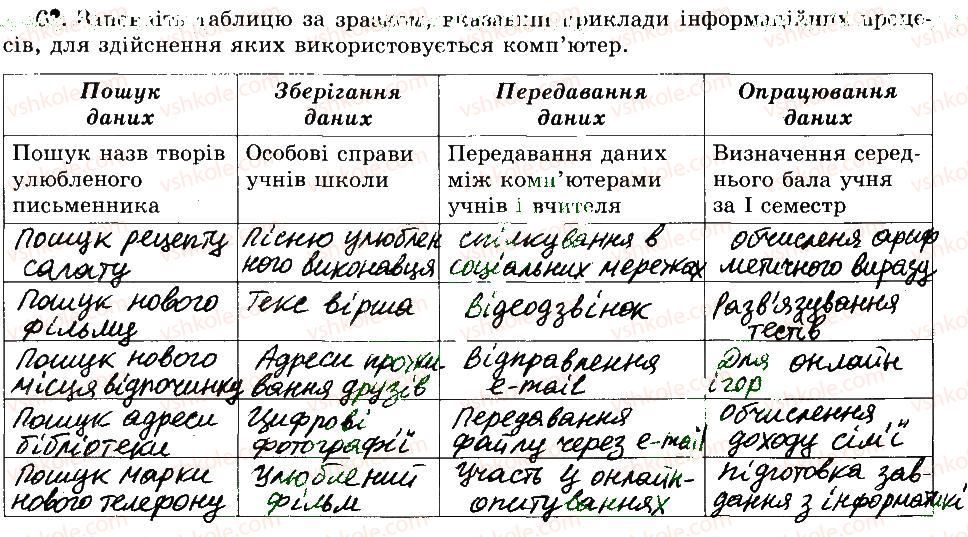 62. Заповніть таблицю за зразком, вказавши приклади інформаційних проце-
сів, для здійснення яких використовується комп'ютер.
Пошук даних
Зберігання даних
Передавання даних
Опрацювання даних
Пошук назв творів
улюбленого
письменника
Особові справи
учнів школи
Передавання даних
між комп'ютерами
учнів і вчителя
Визначення серед-
нього бала учня
за І семестр
Пошук рецепту
салату
Пісню улюблен
ного виконавця
спілкування в
соціальних мережах
обчисленя ариф
метичного виразу
Пошук нового
фільму
Текс вірша
Відеодзвінок
Розв'язування
тестів
Пошук нового
місця відпочинку
Адреси прожи
вання друзів
Відправлення
e-mail
Для онлайн
ігор
Пошук адреси
бібліотеки
Цифрові
фотографії
Передавання
файлу через e-mail
Обчислення
доходу сім'ї
Пошук марки
нового телефону
Улюблений
фільм
Участь у онлайн-
опитуваннях
підготовка зав-
дання з інформатики
vshkole.com